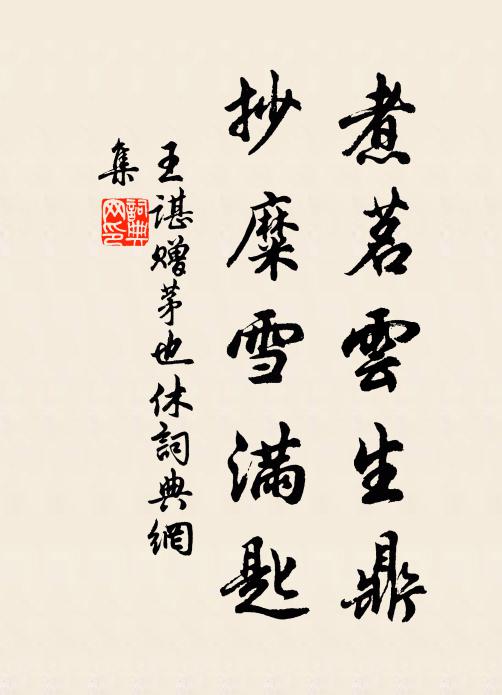 煮茗雲生鼎
抄糜雪满匙
王谌赠茅也休詞典網
集
詞典
网印